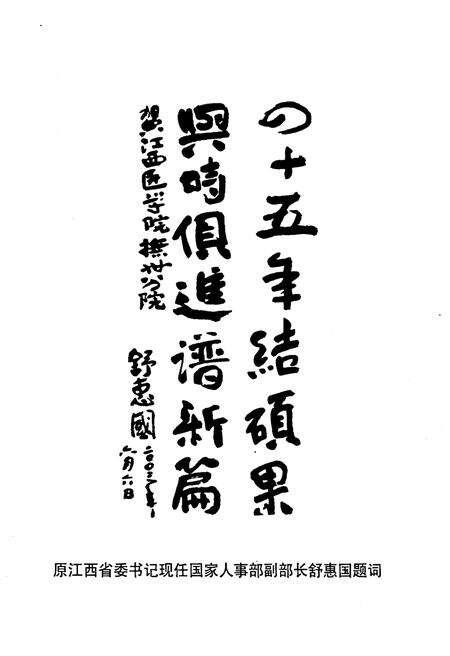 四十五年結碩果
與時俱進谱新篇
贺江西医学院撫州分院
舒惠國
二〇〇三年
六月六日
原江西省委书记现任国家人事部副部长舒惠国题词